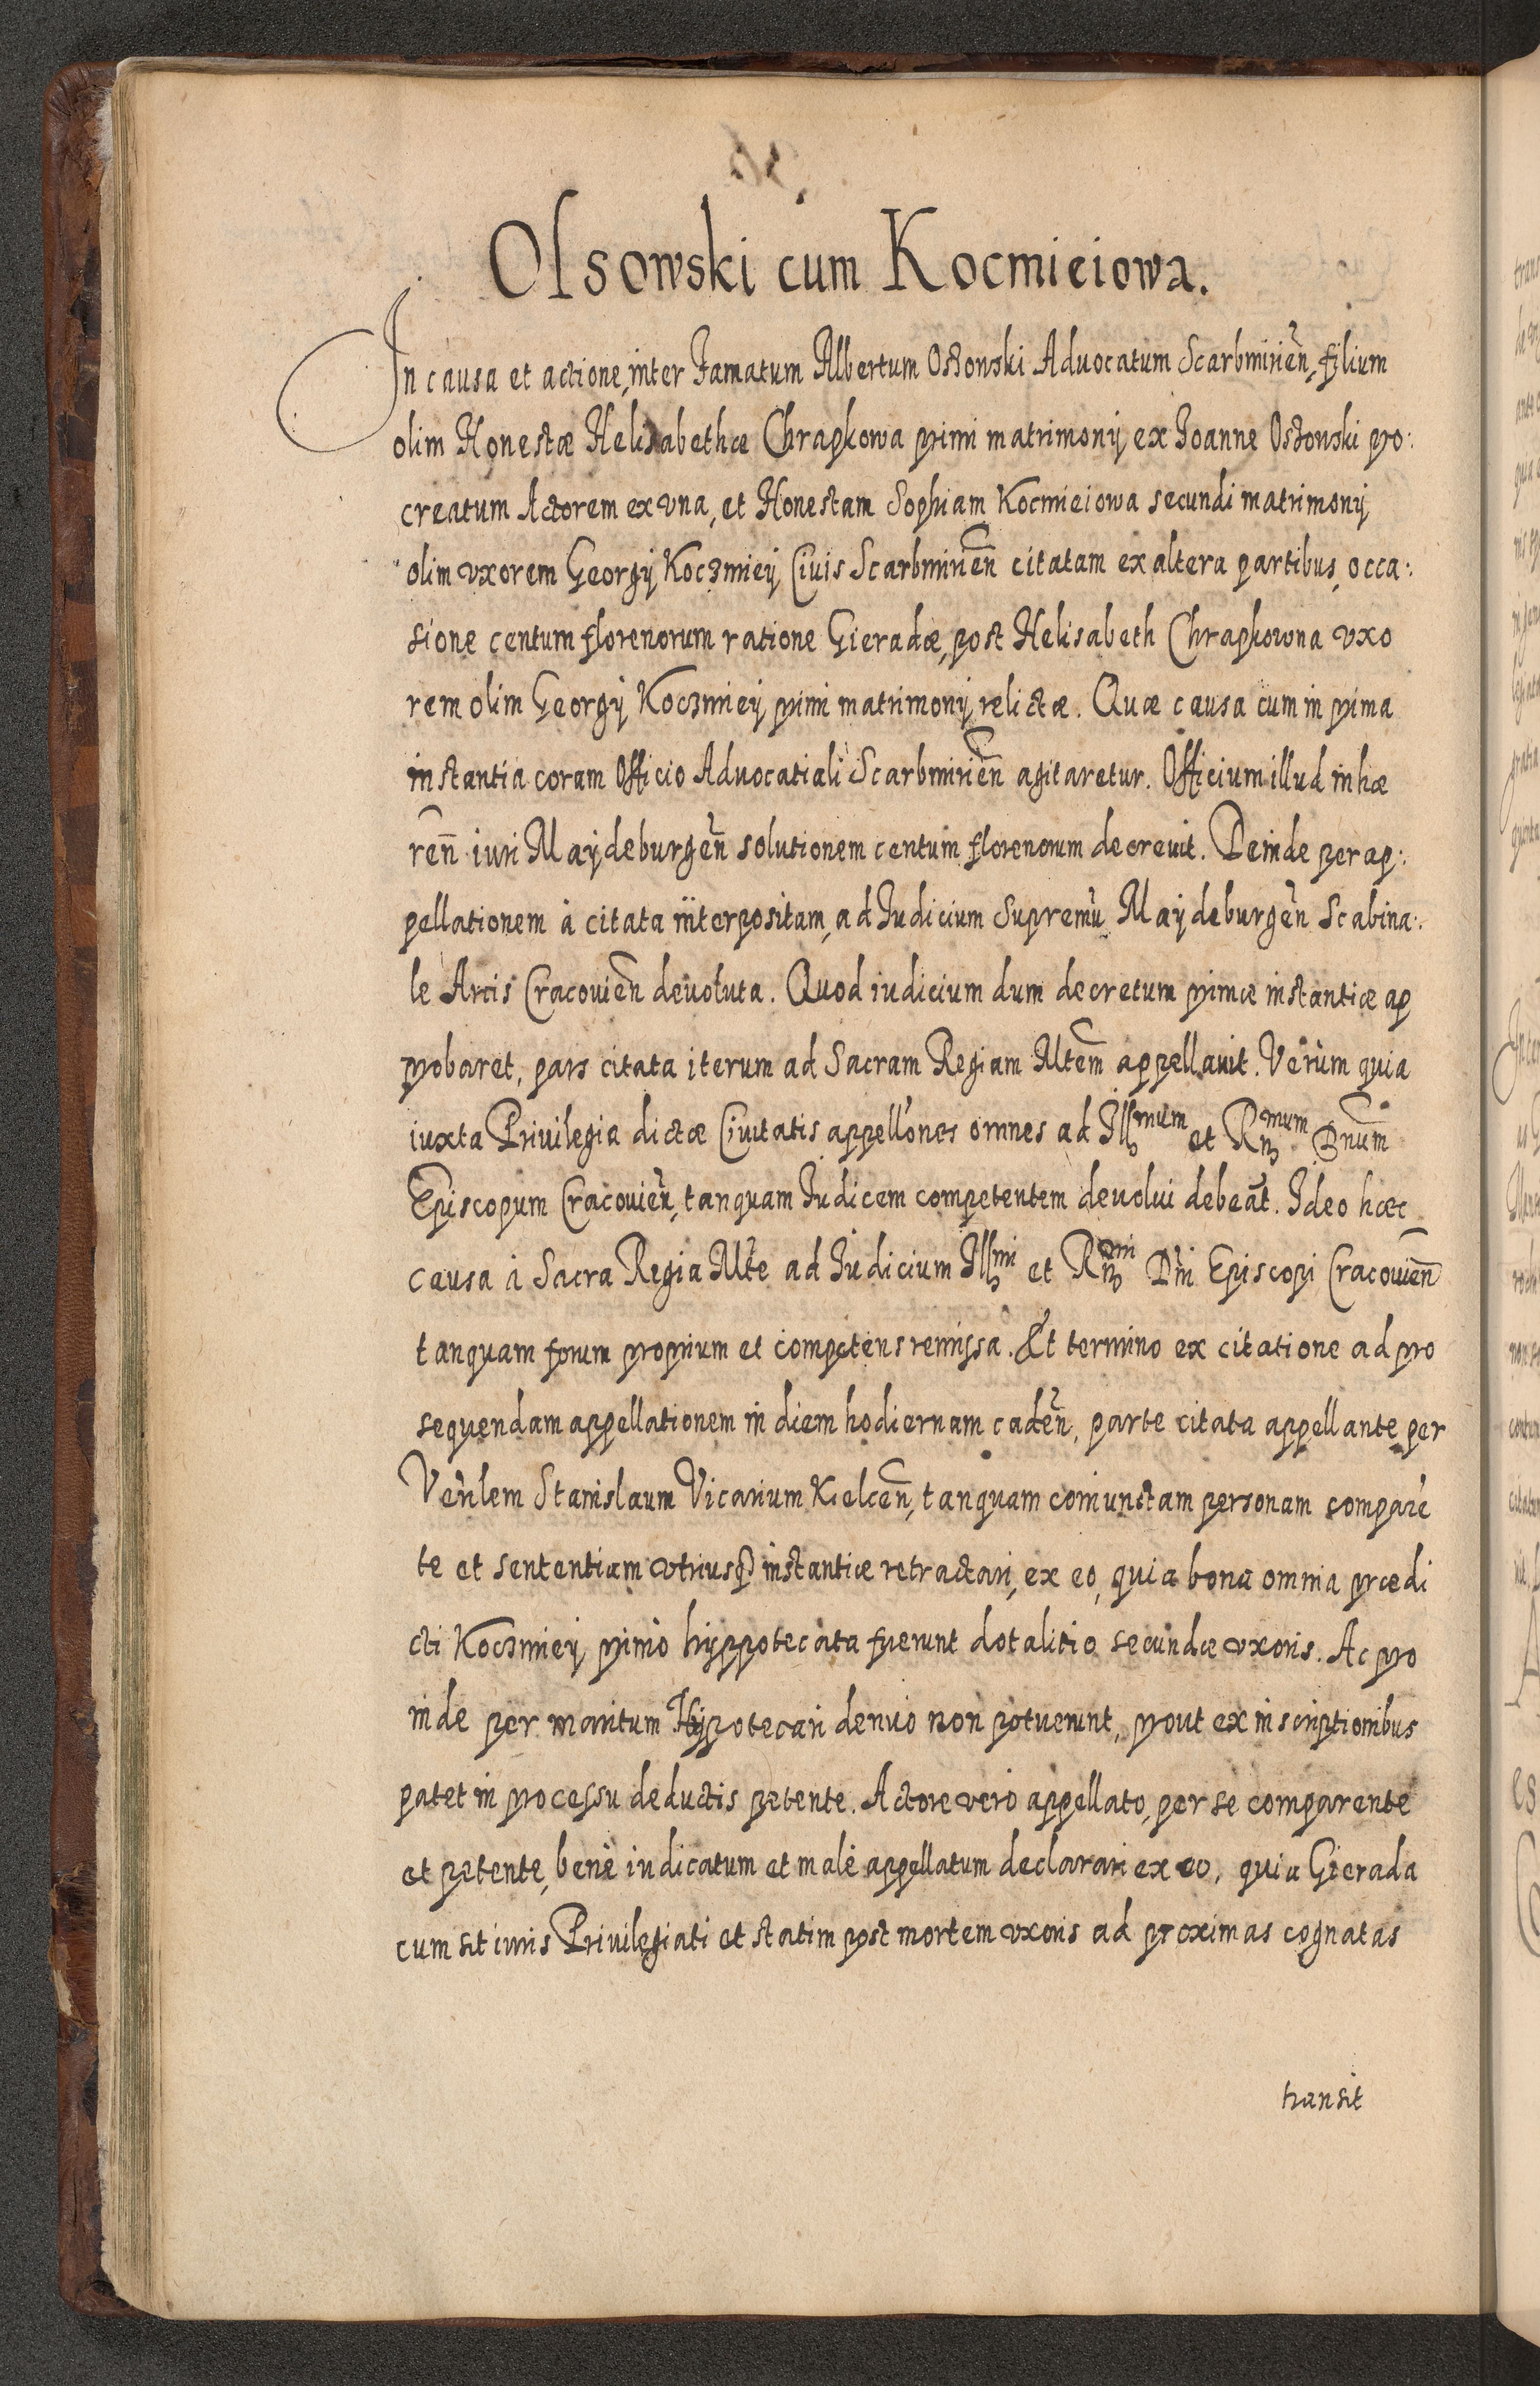 Olsowski cum Kocmieiowa.
In causa et actione, inter Famatum Albertum Olsowski Aduocatum Scarbmirień, filium
olim Honestæ Helisabethæ Chrapkowa primi matrimonij, ex Joanne Olsowski pro:
creatum Actorem ex vna, et Honestam Sophiam Kocmieiowa secundi matrimonij
olim vxorem Georgij Koczmiej, Ciuis Scarbmirień citatam ex altera partibus, occa:
sione centum florenorum ratione Gieradæ, post Helisabeth Chrapkowna vxo
rem olim Georgij Koczmiej, primi matrimonij relictæ. Quæ causa cum in prima
instantia coram Officio Aduocatiali Scarbmirień agitaretur. Officium illud inhæ
reñ iuri Maydeburgeñ solutionem centum florenorum decreuit. Deinde per ap:
pellationem à citata iñterpositam, ad Iudicium Supremũ Maydeburgeñ Scabina:
le Arcis Cracouień deuoluta. Quod iudicium dum decretum primæ instantiæ ap
probaret, pars citata iterum ad Sacram Regiam Mltem appellauit. Verùm quia
iuxta Priuilegia dictæ Ciuitatis appell'ones omnes ad Illmum et Rnmum Dnum
Episcopum Cracouieñ, tanquam Iudicem competentem deuolui debeãt. Ideo hæc
causa à Sacra Regia Mlte ad Iudicium Illmi et Rnmi Dñi Episcopi Cracouień
tanquam forum proprium et competens remissa. Et termino ex citatione ad pro
sequendam appellationem in diem hodiernam cadeñ, parte citata appellante per
Veñlem Stanislaum Vicarium Kielceñ, tanquam coniunctam personam comparẽ
te et sententiam vtriusq instantiæ retractari, ex eo, quia bona omnia prædi
cti Koczmiej, primò hyppotecata fuerunt dotalitio secundæ vxoris. Ac pro
inde per maritum Hypotecari denuò non potuerunt, prout ex inscriptionibus
patet in processu deductis petente. Actore verò appellato, per se comparente
et petente, benè iudicatum et malè appellatum declarari ex eo, quia Gierada
cum sit iuris Priuilegiati et statim post mortem vxoris ad proximas cognatas
transit